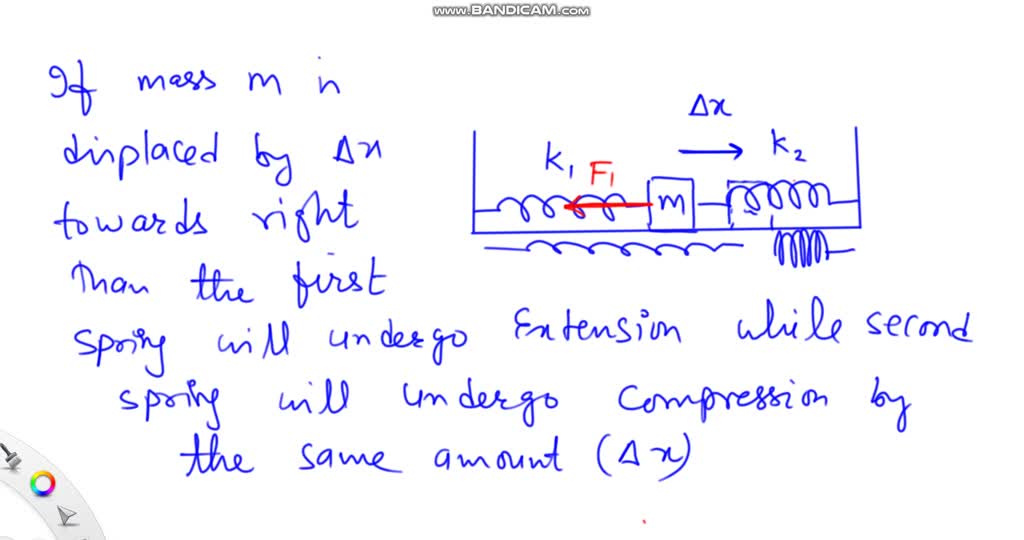 www.BANDICAM.com
If mass m is
displaced by Δx
towards right
Than the first
spring will undergo Extension while second
spring will undergo compression by
the same amount (Δx)
Δx
k1 F1 k2
m